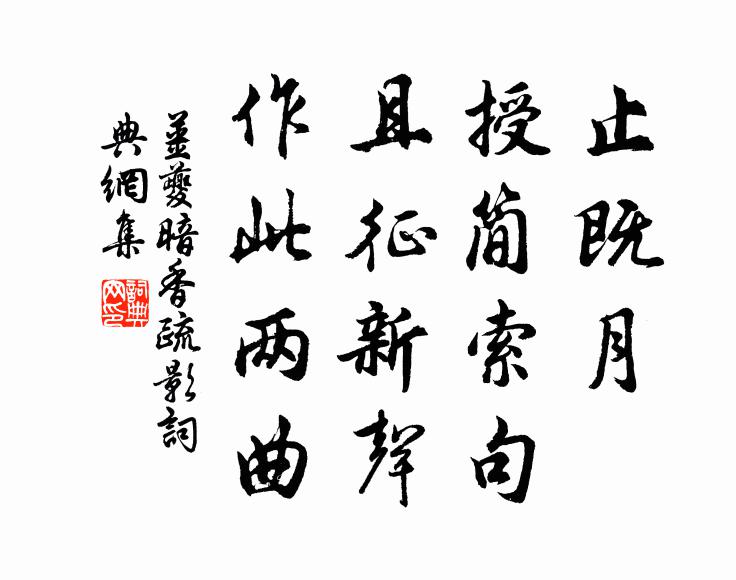 止既月
授简索句
且征新聲
作此两曲
姜夔暗香疏影詞
典網集
詞典網印